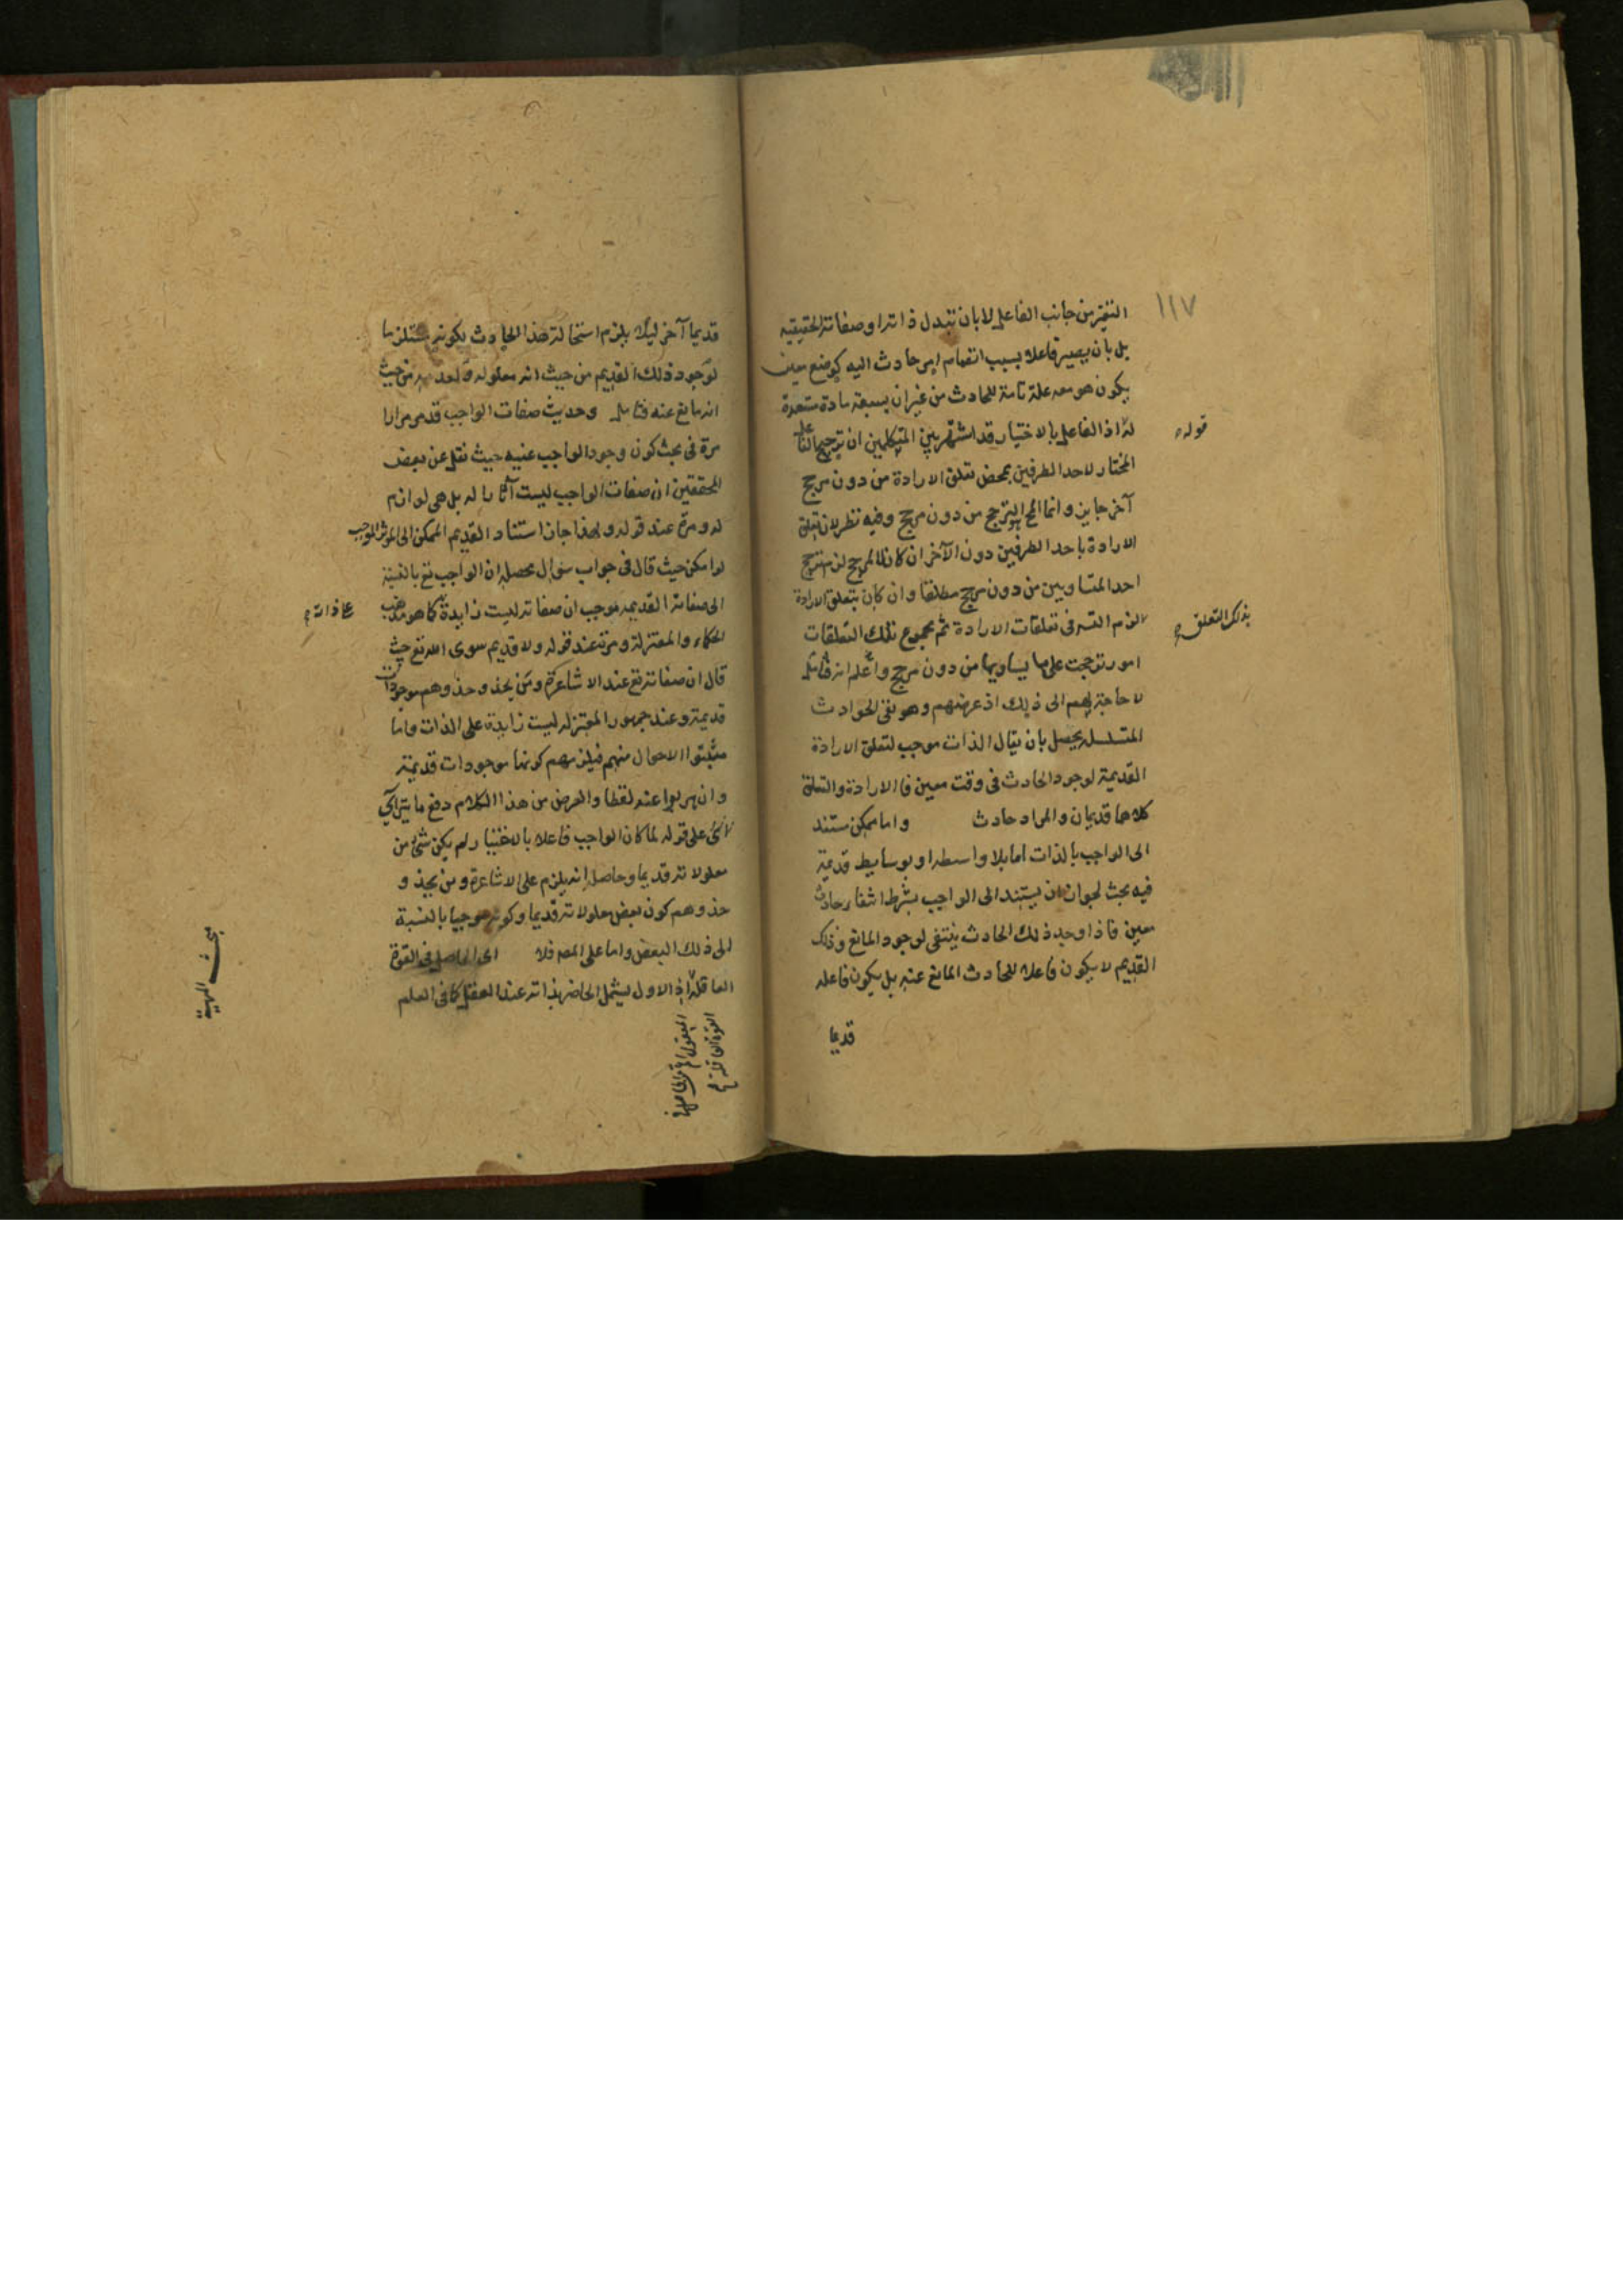 ١١٧
التغير من جانب الفاعل لا بان تتبدل ذاته او صفاته الحقيقيه
بل بان يصير فاعلا بسبب انضمام امر حادث اليه كوضع معين
يكون هو معه علة تامة للحادث من غير ان يسبقه مادة مستعدة
قوله
اذ الفاعل بالاختيار قد اشتهر بين المتكلمين ان ترجيح الفاعل
المختار لاحد الطرفين بمحض تعلق الارادة من دون مرجح
آخر جايز وانما المح الترجح من دون مرجح وفيه نظر لان تعلق
الارادة باحد الطرفين دون الآخر ان كان لا لمرجح لزم ترجح
احد المتساويين من دون مرجح مطلقا وان كان بتعلق الارادة
بذلك التعلق
لزم التسر فى تعلقات الارادة ثم مجموع تلك التعلقات
امور ترجحت على ما يساويها من دون مرجح واعلم انه
لا حاجة لهم الى ذلك اذ غرضهم وهو نفى الحوادث
المتسلسله يحصل بان يقال الذات موجب لتعلق الارادة
القديمة لوجود الحادث فى وقت معين فالارادة والتعلق
كلاهما قديمان والمراد حادث واما ممكن مستند
الى الواجب بالذات اما بلا واسطه او بوسايط قديمة
فيه بحث لجواز ان يستند الى الواجب بشرط انتفاء حادث
معين فاذا وجد ذلك الحادث ينتفى لوجود المانع وذلك
القديم لا يكون فاعلا للحادث المانع عنه بل يكون فاعله
قديما
قديما آخر ليلا يلزم استحالة هذا الحادث بكونه مستلزما
لوجود ذلك القديم من حيث انه معلوله ولعدمه من حيث
انه مانع عنه فتامل وحديث صفات الواجب قد مر مرارا
مرة فى بحث كون وجود الواجب عينه حيث نقل عن بعض
المحققين ان صفات الواجب ليست آثارا له بل هى لوازم
له ومرة عند قوله ولهذا جاز استناد القديم الممكن الى المؤثر الموجب
لو امكن حيث قال فى جواب سؤال محصله ان الواجب تع بالنسبة
الى صفاته القديمه موجب ان صفاته ليست زايدة كما هو مذهب
على ذاته
الحكماء والمعتزلة ومرة عند قوله ولا قديم سوى الله تع حيث
قال ان صفاته تع عند الاشاعرة ومن يحذو حذوهم موجودات
قديمة وعند جمهور المعتزله ليست زايدة على الذات واما
مثبتوا الاحوال منهم فيلزمهم كونها موجودات قديمة
وان هربوا عنه لفظا والغرض من هذا الكلام دفع ما يتراآى
على قوله لما كان الواجب فاعلا بالاختيار لم يكن شئ من
معلولاته قديما وحاصله انه يلزم على الاشاعرة ومن يحذو
حذوهم كون بعض معلولاته قديما وكونه موجبا بالنسبة
الى ذلك البعض واما على المصه فلا اى الحاصل فى القوة
العاقلة اذ الاول يشمل الحاضر بذاته عند العقل كما فى العلم